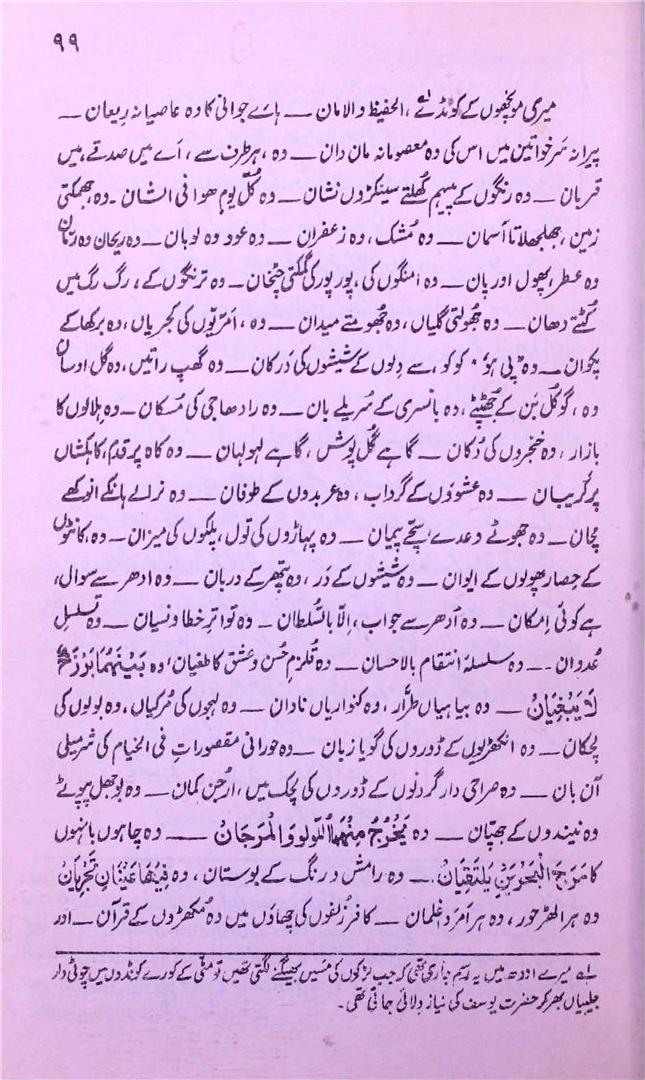 ۹۹
میری مونچھوں کے کونڈے ؎۱، الحفیظ والامان — ہائے جوانی کا وہ عاصیانہ رِیعان —
پیرانہ سَر خواتین میں اس کی وہ معصومانہ مان دان — وہ، ہر طرف سے، اَے میں صدقے، میں
قربان — وہ رنگوں کے پیہم کُھلتے سینکڑوں نشان — وہ کُلَّ یومٍ ھوا فی الشان — وہ، بھمکتی
زمین، جھلجھلاتا آسمان — وہ مُشک، وہ زعفران — وہ عود وہ لوبان — وہ ریحان وہ رمّان
وہ عطر، پھول اور پان — وہ امنگوں کی، پور پور کی گمکتی چٹخان — وہ ترنگوں کے، رگ رگ میں
کُٹتے دھان — وہ جھولتی گلیاں، وہ جھومتے میدان — وہ، اَمرّیوں کی کجریاں، وہ برکھا کے
پکوان — وہ "پی ہو"، کوکو، سے دِلوں کے شیشوں کی دَرکان — وہ گھپ راتیں، وہ گل اوسان
وہ، گوکُل بَن کے جُھٹپٹے، وہ بانسری کے سُریلے بان — وہ رادھا جی کی مُسکان — وہ ہلالوں کا
بازار، وہ خنجروں کی دُکان — گاہے گُل پوش، گاہے لہولہان — وہ کاہ پر قدم، کاہکشاں
پر گریبان — وہ عشووں کے گرداب، وہ عربدوں کے طوفان — وہ نرالے بانکے انوکھے
مچان — وہ جھوٹے وعدے سچّے پیمان — وہ پہاڑوں کی تول، پلکوں کی میزان — وہ، کانٹوں
کے حصار پھولوں کے ایوان — وہ شیشوں کے دَر، وہ پتّھر کے دربان — وہ ادھر سے سوال،
ہے کوئی اِمکان — وہ اُدھر سے جواب، اِلّا بالسُّلطان — وہ تواترِ خطا و نسیان — وہ تسلسلِ
عُدوان — وہ سلسلۂ انتقام بالاحسان — وہ قُلزمِ حُسن و عشق کا طغیان، وہ بَیْنَھُمَا بَرْزَخٌ
لَا یَبْغِیَانْ — وہ بیاہیاں طرّار، وہ کنواریاں نادان — وہ لہجوں کی مُرکیاں، وہ بولوں کی
لچکان — وہ انکھڑیوں کے ڈوروں کی گویا زبان — وہ حورانی مقصوراتِ فی الخیام کی شرمیلی
آن بان — وہ صراحی دار گردنوں کے ڈوروں کی لچک میں، ارجن کمان — وہ بوجھل پپوٹے
وہ نیندوں کے جھپّان — وہ یَخْرُجُ مِنْھُمَا اللّولو وَالْمَرجَانْ — وہ چاہوں بانہوں
کا مَرَجَ الْبَحْرَیْنِ یَلْتَقِیَان — وہ رامش و رنگ کے بوستان، وہ فِیْھَا عَیْنَانِ تَجْرِیَانْ
وہ ہر الھڑ حور، وہ ہر اَمرَد غلمان — کافر زُلفوں کی چھاؤں میں وہ مُکھڑوں کے قرآن — اور
؎۱ میرے اودھ میں یہ رسم جاری تھی کہ جب لڑکوں کی مَسیں بھیگنے لگتی تھیں تو مٹی کے کورے کونڈوں میں چوٹی دار
جلیبیاں بھر کر حضرت یوسف کی نیاز دلائی جاتی تھی۔